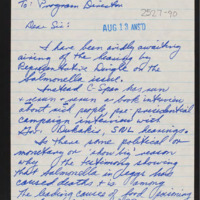 To Program Director
2527-90
Dear Sir:
AUG 13 AND
I have been avidly awaiting
airing of the hearing by
Representative Dingle on the
Salmonella issue.
Instead C-Span has run
& rerun & rerun a book interview
about past presidential
campaign interview with
Gov. Dukakis, S&L hearings.
Is there some political or
monetary or "show biz" reason
why the testimony showing
that Salmonella in eggs have
caused deaths & is
the leading causes of food poisoning